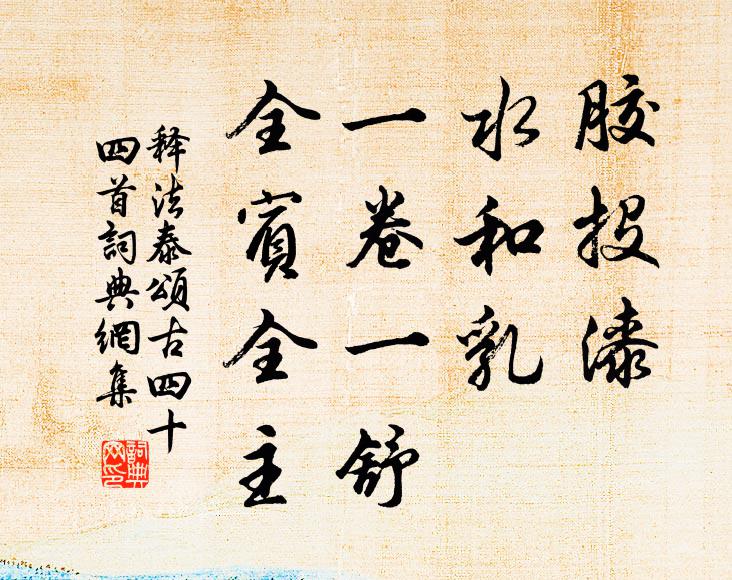 胶投漆
水和乳
一卷一舒
全賓全主
释法泰頌古四十
四首詞典網集
詞典網印